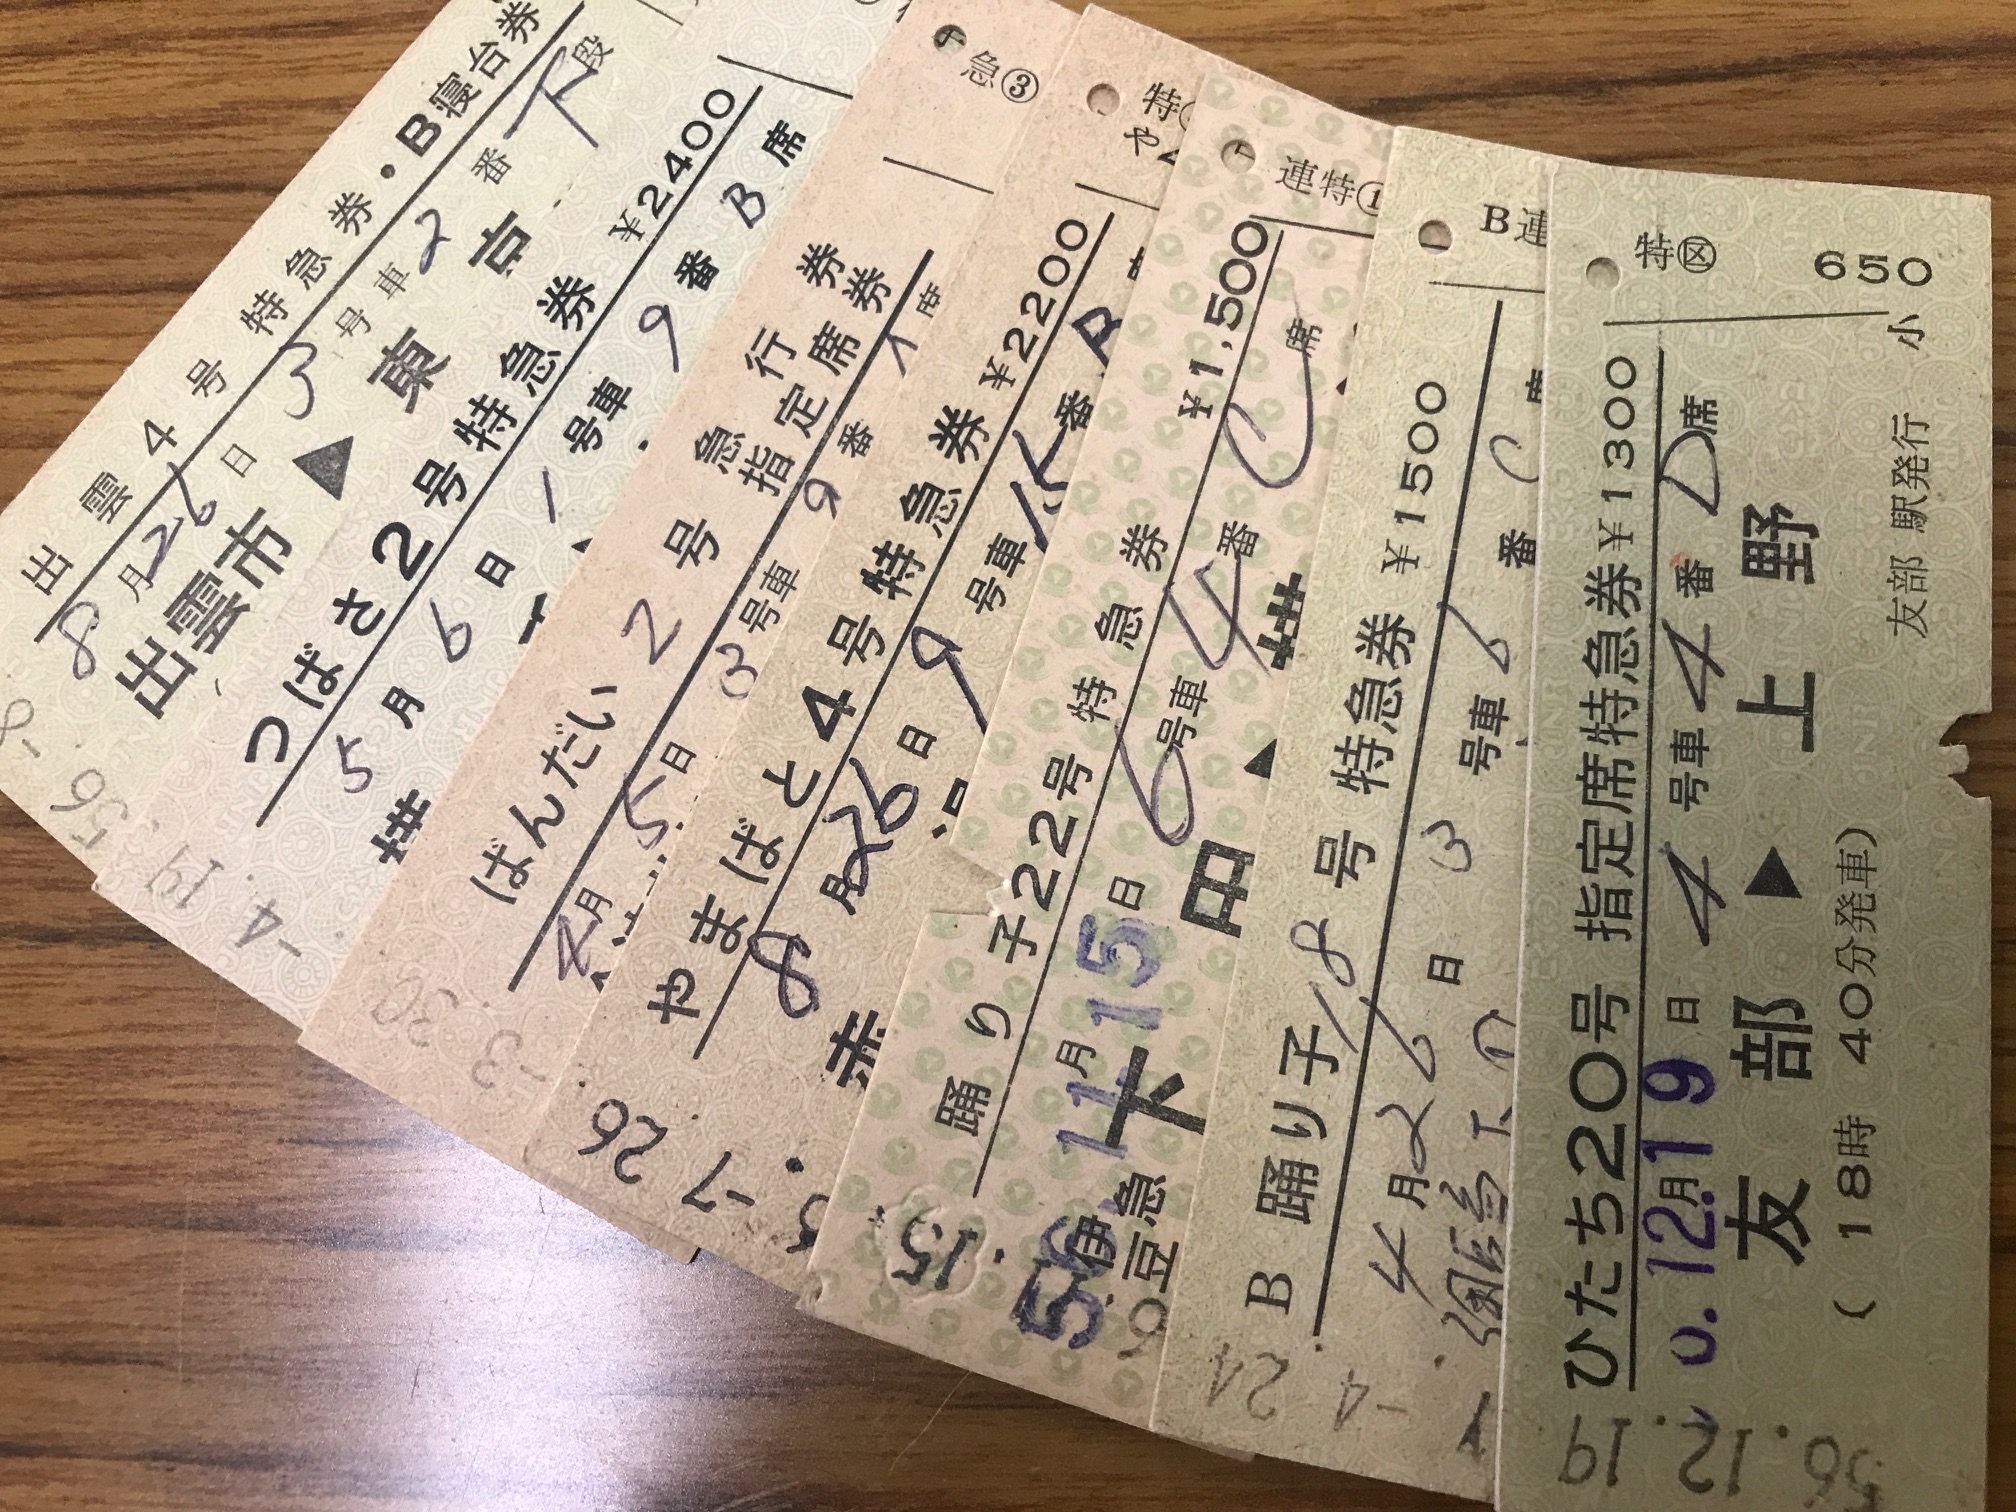 出雲4号 特急券・B寝台券
56.-8.
8月26日 3号車 2番 下段
出雲市▶東京
-4.19
つばさ2号特急券 ¥2400
5月6日 1号車 9番 B席
-3.30
ばんだい 2号 急行券
指定席券
4月5日 3号車 9番 席
急③
-7.26
やまばと4号特急券 ¥2200
8月26日 9号車 15番 B
特
や
11.15
踊り子22号 特急券 ¥1,500
56.11月15日 6号車 4番 C席
伊豆急 下田▶横
連特①
-4.24
B 踊り子18号 特急券 ¥1500
4月26日 3号車 6番 C席
伊豆急下田
B連
56.12.19
ひたち20号 指定席特急券 ¥1300
6.12月19日 4号車 4番 D席
友部▶上野
(18時 40分発車)
友部駅発行 小
特区
650